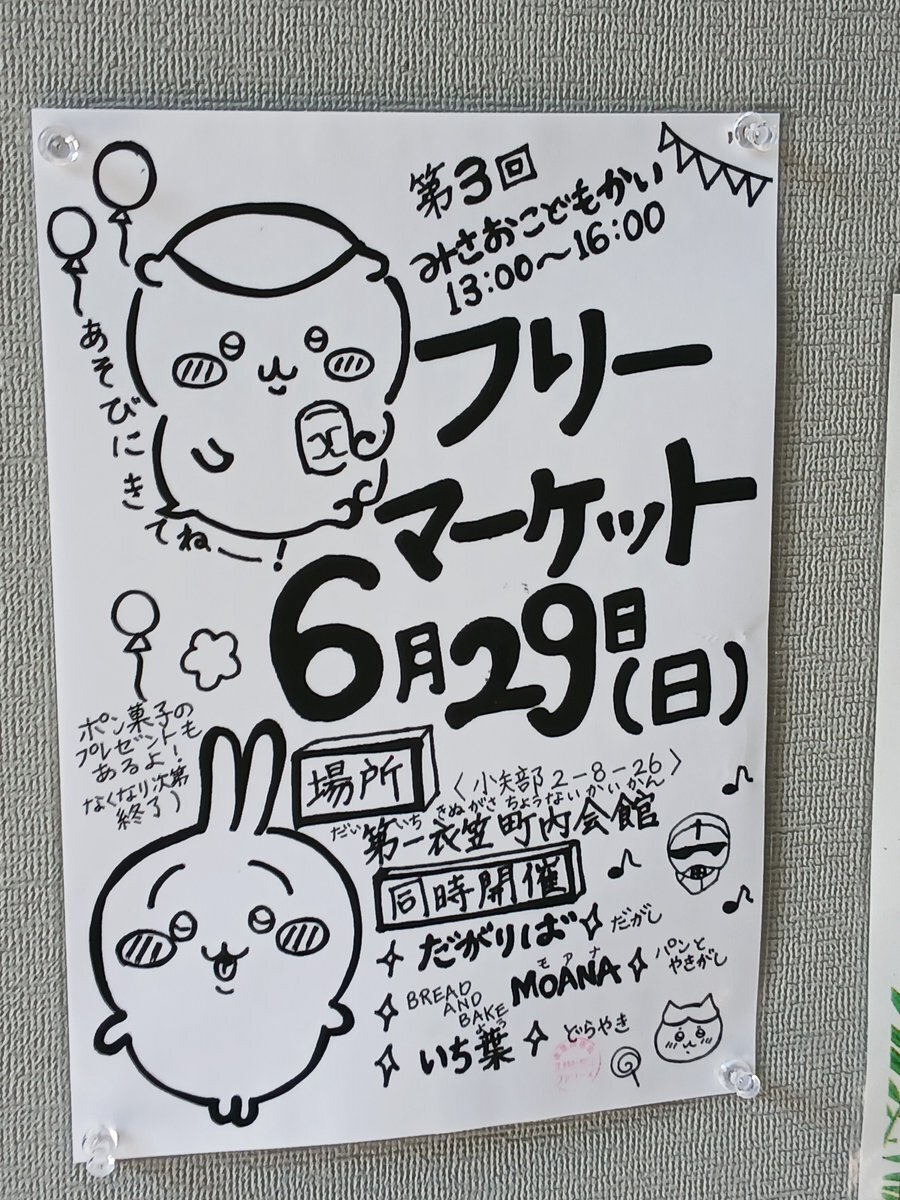 第3回
みさおこどもかい
13:00～16:00
フリー
マーケット
6月29日(日)
あそびにきてねー!
ポン菓子の
プレゼントも
あるよ!
なくなり次第
終了)
場所
〈小矢部2-8-26〉
だいいちきぬがさちょうないかいかん
第一衣笠町内会館
同時開催
だがりば
だがし
BREAD
AND
BAKE
モアナ
MOANA
パンと
やきがし
よう
いち葉
どらやき